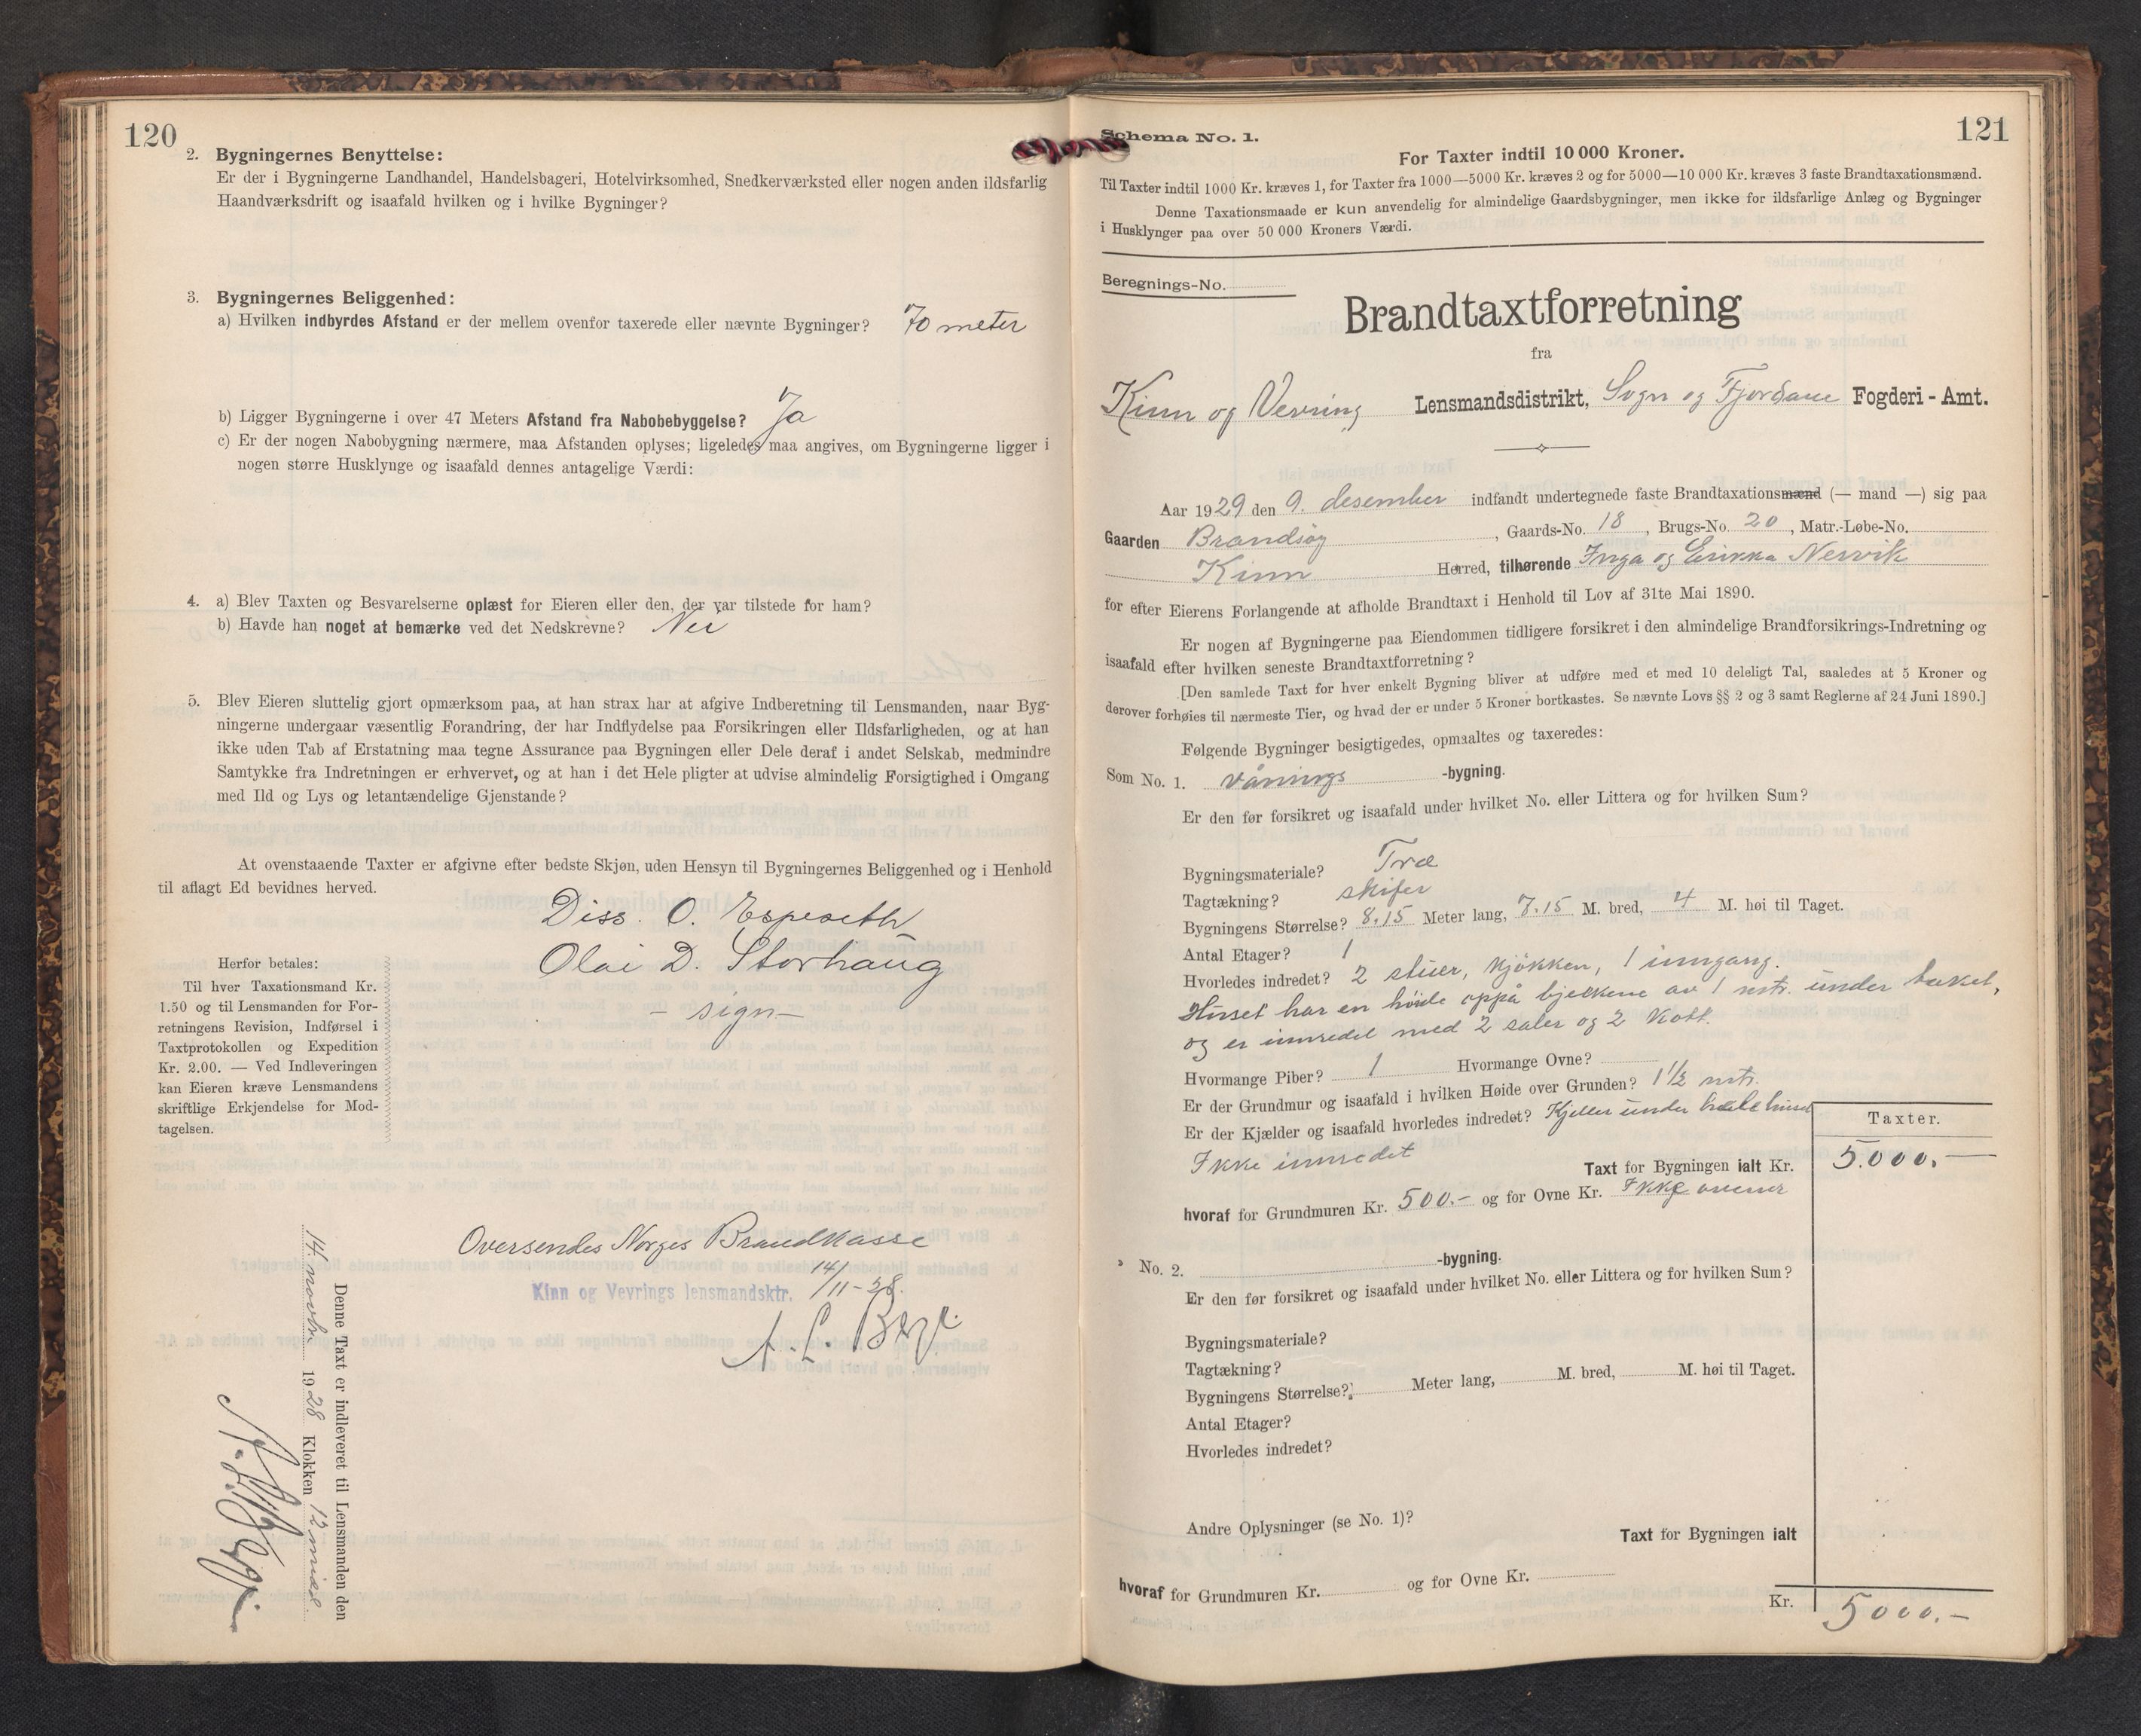 120
2. Bygningernes Benyttelse:
Er der i Bygningerne Landhandel, Handelsbageri, Hotelvirksomhed, Snedkerværksted eller nogen anden ildsfarlig
Haandværksdrift og isaafald hvilken og i hvilke Bygninger?
3. Bygningernes Beliggenhed:
a) Hvilken indbyrdes Afstand er der mellem ovenfor taxerede eller nævnte Bygninger? 70 meter
b) Ligger Bygningerne i over 47 Meters Afstand fra Nabobebyggelse? Ja
c) Er der nogen Nabobygning nærmere, maa Afstanden oplyses; ligeledes maa angives, om Bygningerne ligger i
nogen større Husklynge og isaafald dennes antagelige Værdi:
4. a) Blev Taxten og Besvarelserne oplæst for Eieren eller den, der var tilstede for ham?
b) Havde han noget at bemærke ved det Nedskrevne? Nei
5. Blev Eieren sluttelig gjort opmærksom paa, at han strax har at afgive Indberetning til Lensmanden, naar Byg-
ningerne undergaar væsentlig Forandring, der har Indflydelse paa Forsikringen eller Ildsfarligheden, og at han
ikke uden Tab af Erstatning maa tegne Assurance paa Bygningen eller Dele deraf i andet Selskab, medmindre
Samtykke fra Indretningen er erhvervet, og at han i det Hele pligter at udvise almindelig Forsigtighed i Omgang
med Ild og Lys og letantændelige Gjenstande?
At ovenstaaende Taxter er afgivne efter bedste Skjøn, uden Hensyn til Bygningernes Beliggenhed og i Henhold
til aflagt Ed bevidnes herved.
Diss. O. Espeseth
Olai D. Storhaug
- sign -
Herfor betales:
Til hver Taxationsmand Kr.
1.50 og til Lensmanden for For-
retningens Revision, Indførsel i
Taxtprotokollen og Expedition
Kr. 2.00. — Ved Indleveringen
kan Eieren kræve Lensmandens
skriftlige Erkjendelse for Mod-
tagelsen.
Oversendes Norges Brandkasse
Kinn og Vevrings lensmandsktr. 14/11-28.
Denne Taxt er indleveret til Lensmanden den
14. novbr. 1928 Klokken 12 midd.
121
Schema No. 1.
For Taxter indtil 10 000 Kroner.
Til Taxter indtil 1000 Kr. kræves 1, for Taxter fra 1000—5000 Kr. kræves 2 og for 5000—10 000 Kr. kræves 3 faste Brandtaxationsmænd.
Denne Taxationsmaade er kun anvendelig for almindelige Gaardsbygninger, men ikke for ildsfarlige Anlæg og Bygninger
i Husklynger paa over 50 000 Kroners Værdi.
Beregnings-No.
Brandtaxtforretning
fra
Kinn og Vevring Lensmandsdistrikt, Sogn og Fjordane Fogderi - Amt.
Aar 1929 den 9. desember indfandt undertegnede faste Brandtaxationsmænd (— mand —) sig paa
Gaarden Brandsøy, Gaards-No. 18, Brugs-No. 20, Matr.-Løbe-No.
Kinn Herred, tilhørende Inga og Erikka Nesvik
for efter Eierens Forlangende at afholde Brandtaxt i Henhold til Lov af 31te Mai 1890.
Er nogen af Bygningerne paa Eiendommen tidligere forsikret i den almindelige Brandforsikrings-Indretning og
isaafald efter hvilken seneste Brandtaxtforretning?
[Den samlede Taxt for hver enkelt Bygning bliver at udføre med et med 10 deleligt Tal, saaledes at 5 Kroner og
derover forhøies til nærmeste Tier, og hvad der er under 5 Kroner bortkastes. Se nævnte Lovs §§ 2 og 3 samt Reglerne af 24 Juni 1890.]
Følgende Bygninger besigtigedes, opmaaltes og taxeredes:
Som No. 1. vånings -bygning.
Er den før forsikret og isaafald under hvilket No. eller Littera og for hvilken Sum?
Bygningsmateriale? Træ
Tagtækning? skifer
Bygningens Størrelse? 8.15 Meter lang, 7.15 M. bred, 4 M. høi til Taget.
Antal Etager? 1
Hvorledes indredet? 2 stuer, kjökken, 1 inngang.
Huset har en höide oppå bjelkene av 1 mtr. under taket,
og er innredet med 2 saler og 2 kott.
Hvormange Piber? 1 Hvormange Ovne?
Er der Grundmur og isaafald i hvilken Høide over Grunden? 1½ mtr.
Er der Kjælder og isaafald hvorledes indredet? Kjeller under hele huset
Ikke innredet
Taxter.
Taxt for Bygningen ialt Kr. 5.000.—
hvoraf for Grundmuren Kr. 500.- og for Ovne Kr. Ikke ovener
» No. 2. -bygning.
Er den før forsikret og isaafald under hvilket No. eller Littera og for hvilken Sum?
Bygningsmateriale?
Tagtækning?
Bygningens Størrelse? Meter lang, M. bred, M. høi til Taget.
Antal Etager?
Hvorledes indredet?
Andre Oplysninger (se No. 1)?
Taxt for Bygningen ialt
hvoraf for Grundmuren Kr. og for Ovne Kr.
Kr. 5000.-